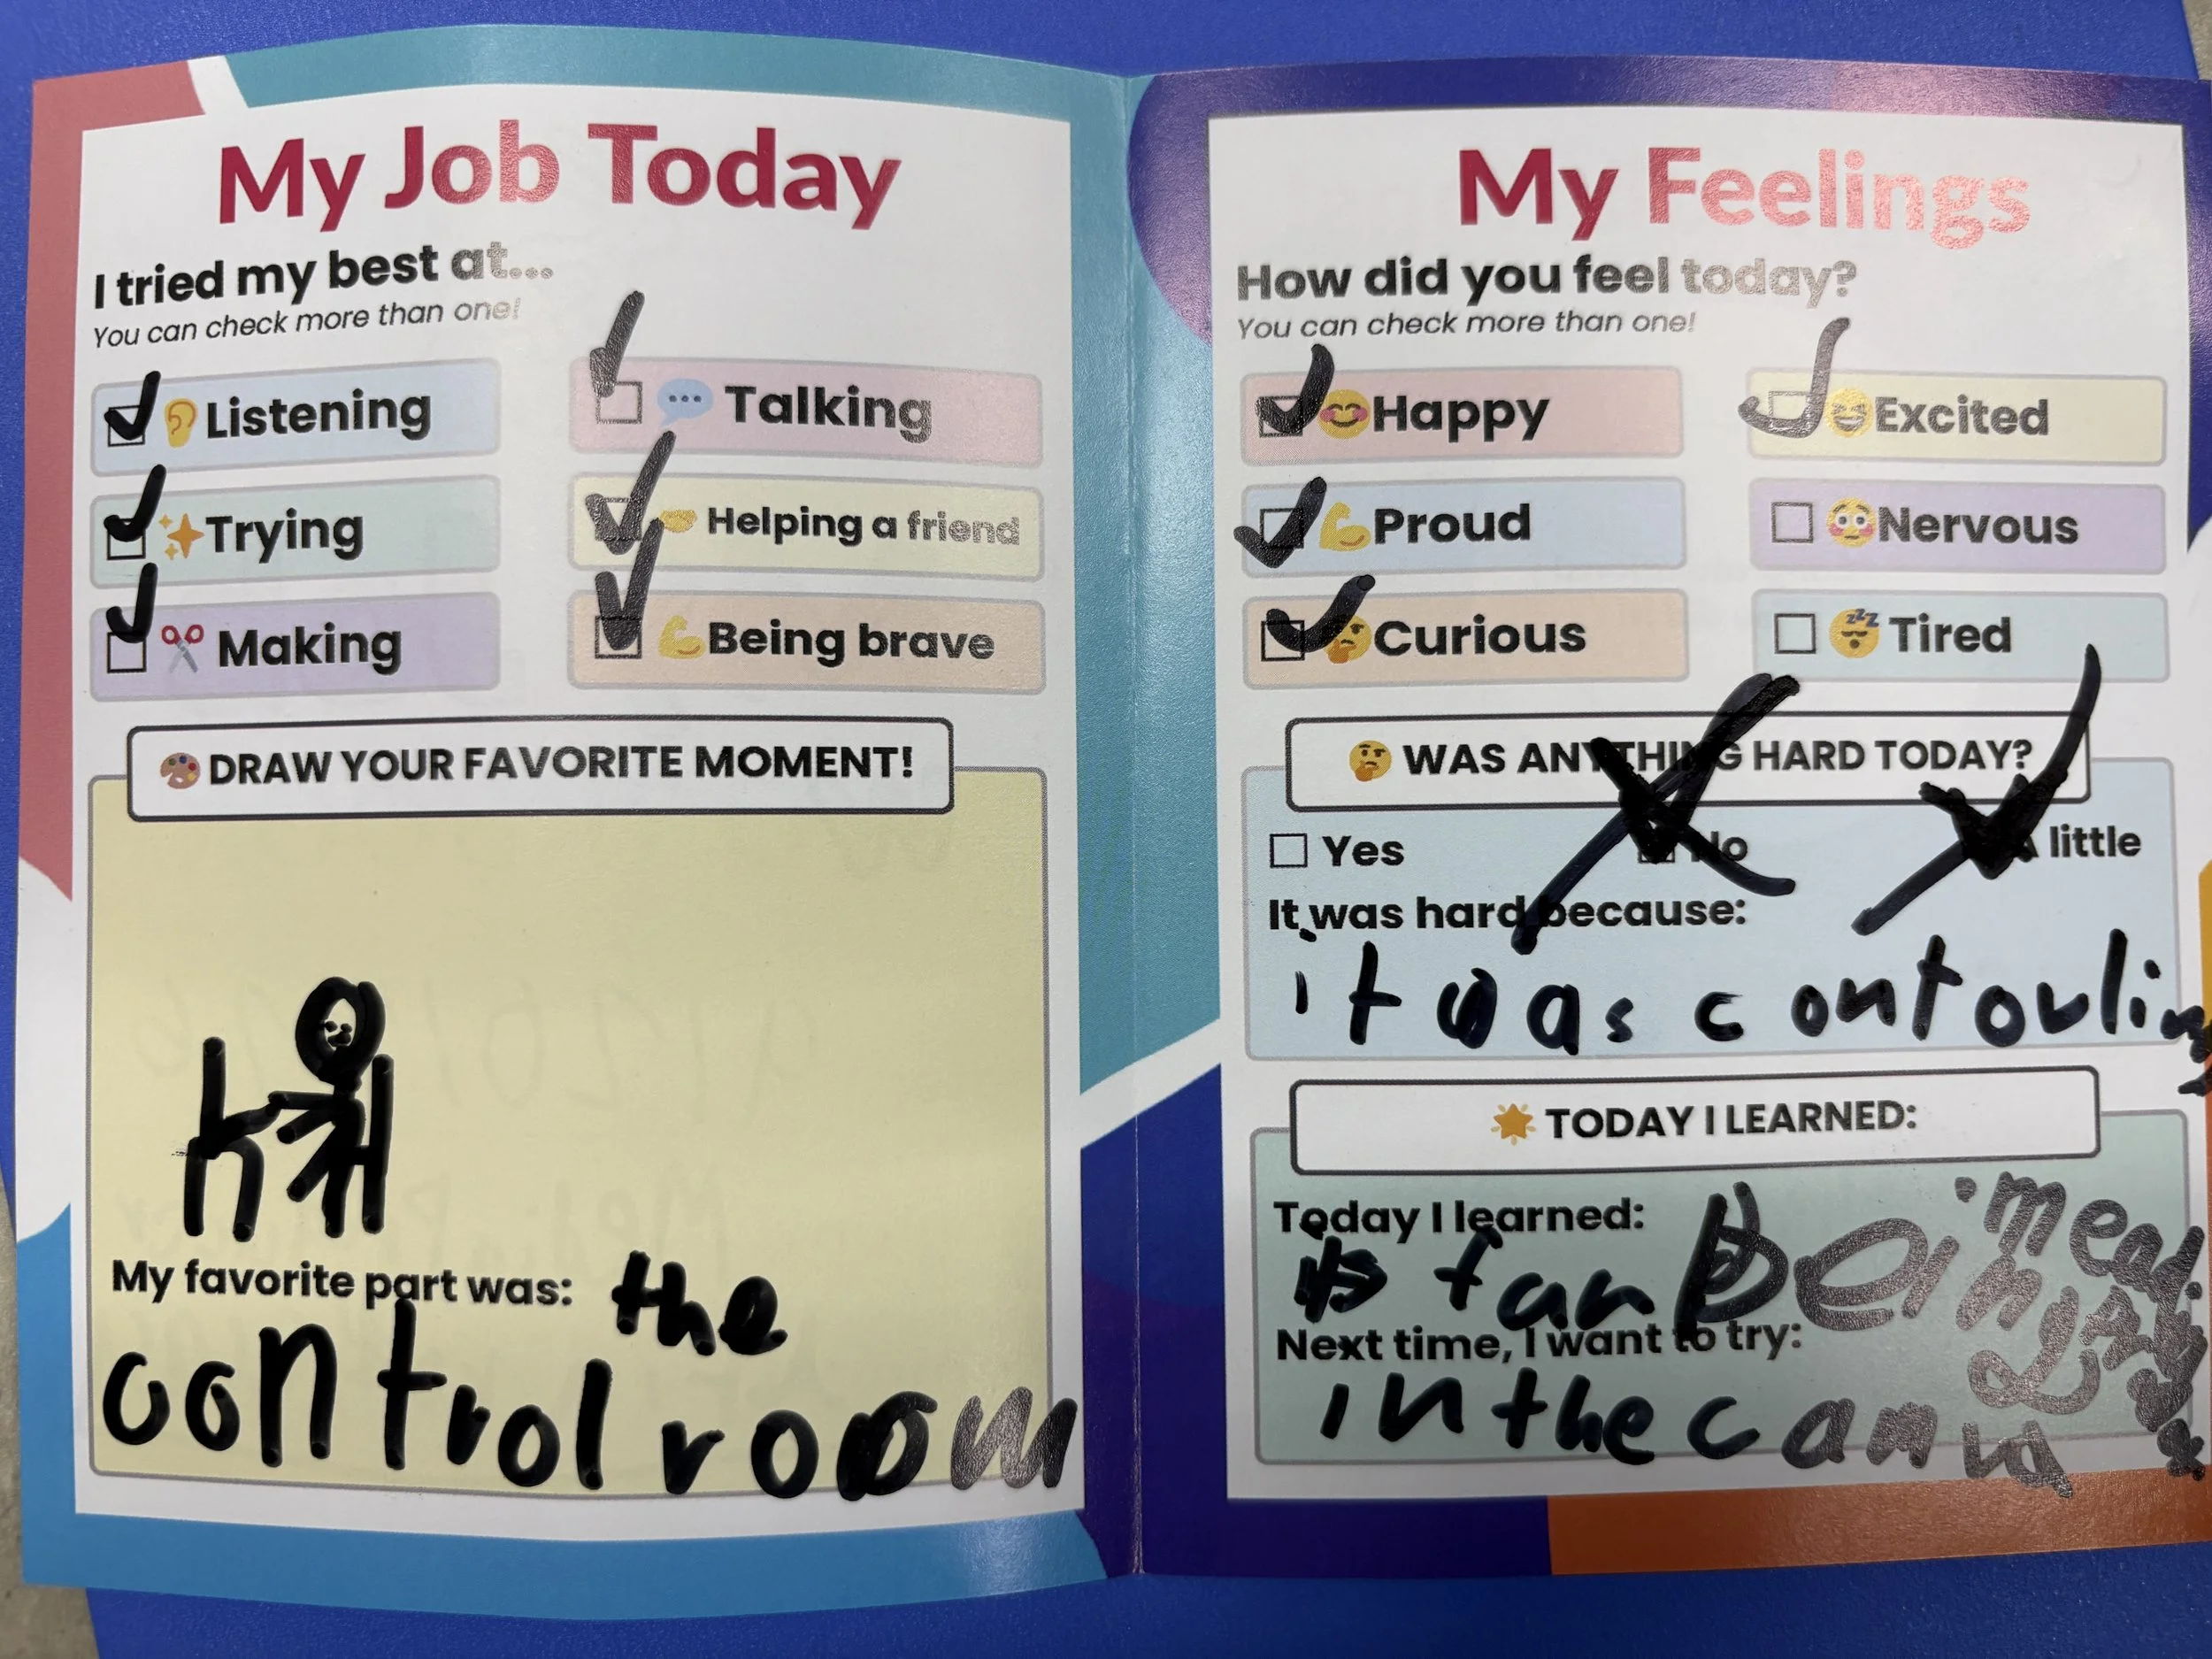 My Job Today
I tried my best at...
You can check more than one!
Listening
Talking
Trying
Helping a friend
Making
Being brave
DRAW YOUR FAVORITE MOMENT!
My favorite part was: the
control room
My Feelings
How did you feel today?
You can check more than one!
Happy
Excited
Proud
Nervous
Curious
Tired
WAS ANYTHING HARD TODAY?
Yes
No
A little
It was hard because:
it was contoulin
TODAY I LEARNED:
Today I learned:
Being
Next time, I want to try:
in the